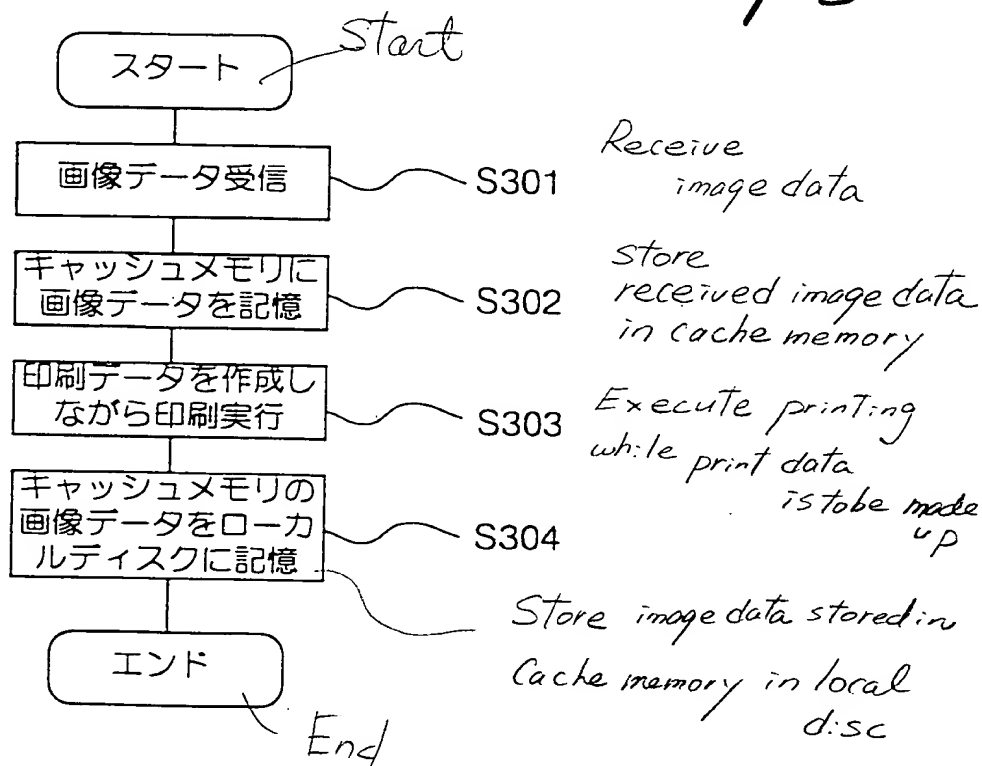 スタート
Start
画像データ受信
S301
Receive
image data
キャッシュメモリに
画像データを記憶
S302
store
received image data
in cache memory
印刷データを作成し
ながら印刷実行
S303
Execute printing
while print data
is to be made
up
キャッシュメモリの
画像データをローカ
ルディスクに記憶
S304
Store image data stored in
Cache memory in local
disc
エンド
End